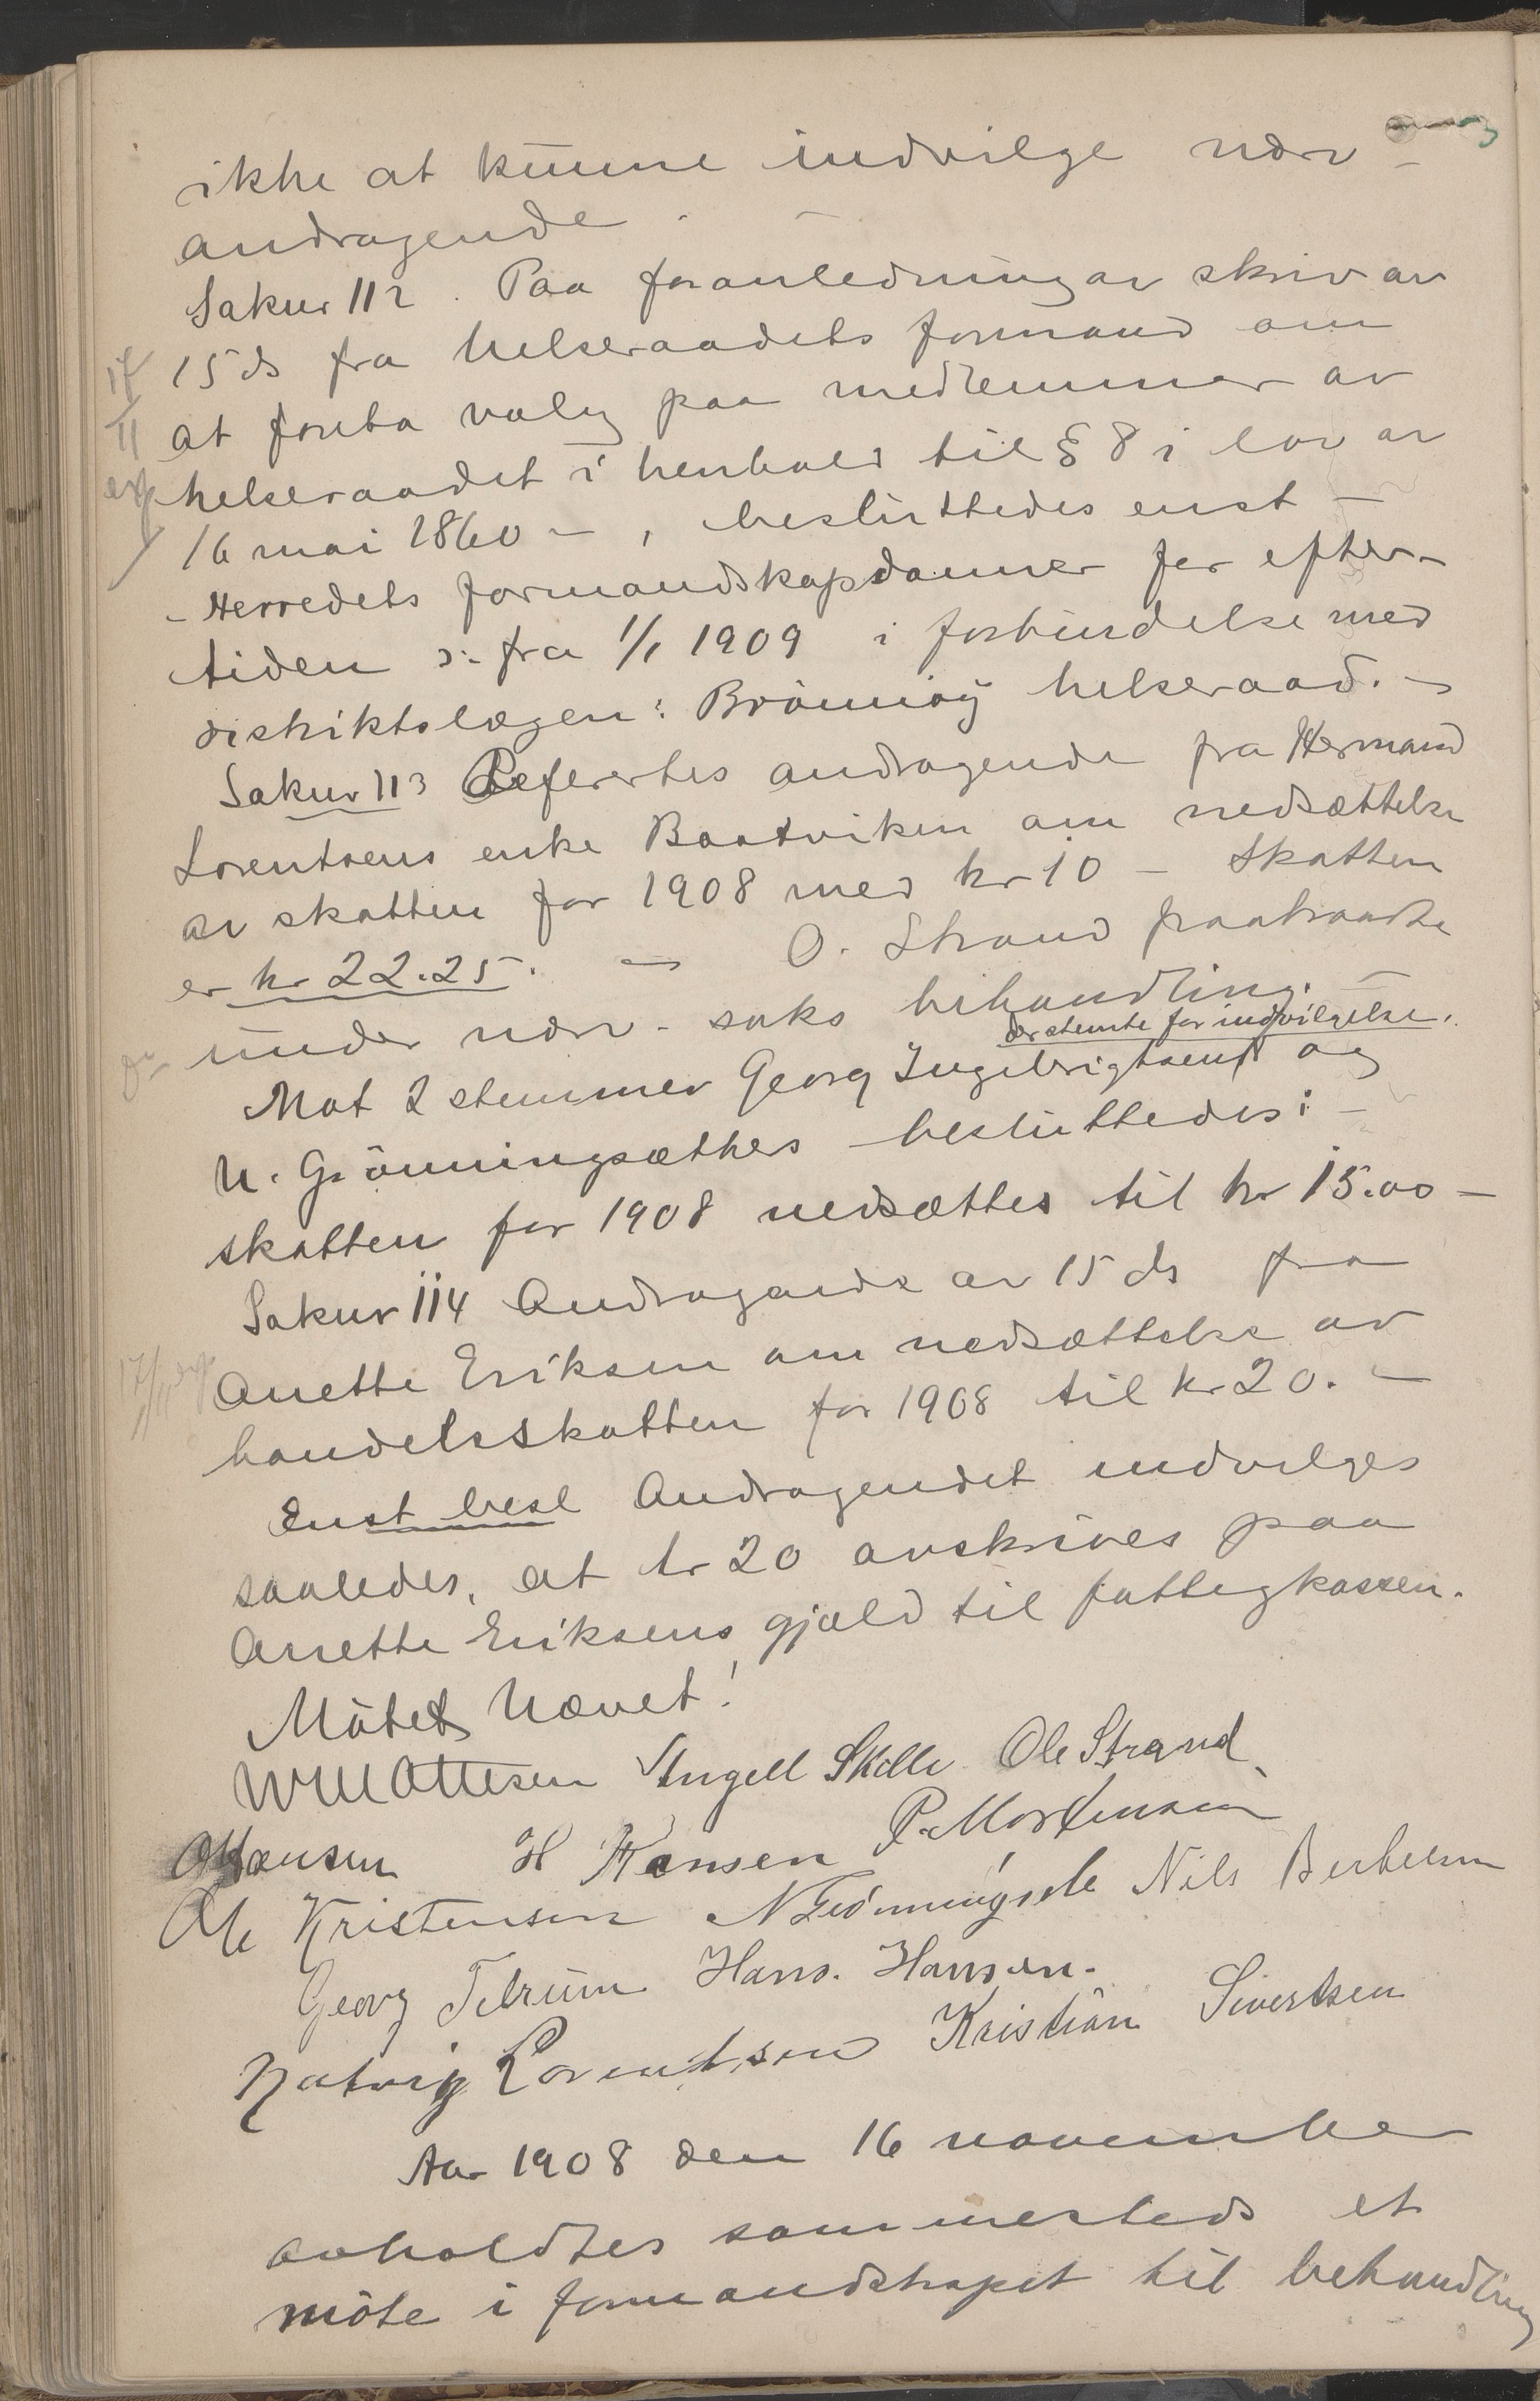 ikke at kunne indvilge nærv -
andragende.
Saknr 112. Paa foranledning av skriv av
15 ds fra helseraadets formand om
at foreta valg paa medlemmer av
helseraadet i henhold til § 8 i lov av
16 mai 1860 - , besluttedes enst -
- Herredets formandskap danner for efter-
tiden ɔ: fra 1/1 1909 i forbindelse med
distriktslægen: Brönnöy helseraad. -
Saknr 113 Refertes andragende fra Hermand
Lorentsens enke Baatviken om nedsættelse
av skatten for 1908 med kr 10 - Skatten
er kr 22.25. - O. Strand fraatraadte
under nærv. saks behandling. -
der stemte for indvilgelse.
Mot 2 stemmer Georg Ingebrigtsens og
N. Grönningsæthes besluttedes: -
skatten for 1908 nedsættes til kr 15.00 -
Saknr 114 Andragende av 15 ds fra
Anette Eriksen om nedsættelse av
handelsskatten for 1908 til kr 20. -
Enst besl Andragendet indvilges
saaledes, at kr 20 avskrives paa
Anette Eriksens gjæld til fattigkassen.
Mötet hævet!
17/11
17/11
WM Ottesen Angell Skille Ole Strand
O Hansen H Hansen P. Mortensen
Ole Kristensen N Grönningsæte Nils Berthelsen
Georg Tilrum Hans. Hansen.
Hartvig Lorentsen Kristian Sivertsen
Aar 1908 den 16 november
avholdtes sammesteds et
möte i formandskapet til behandling